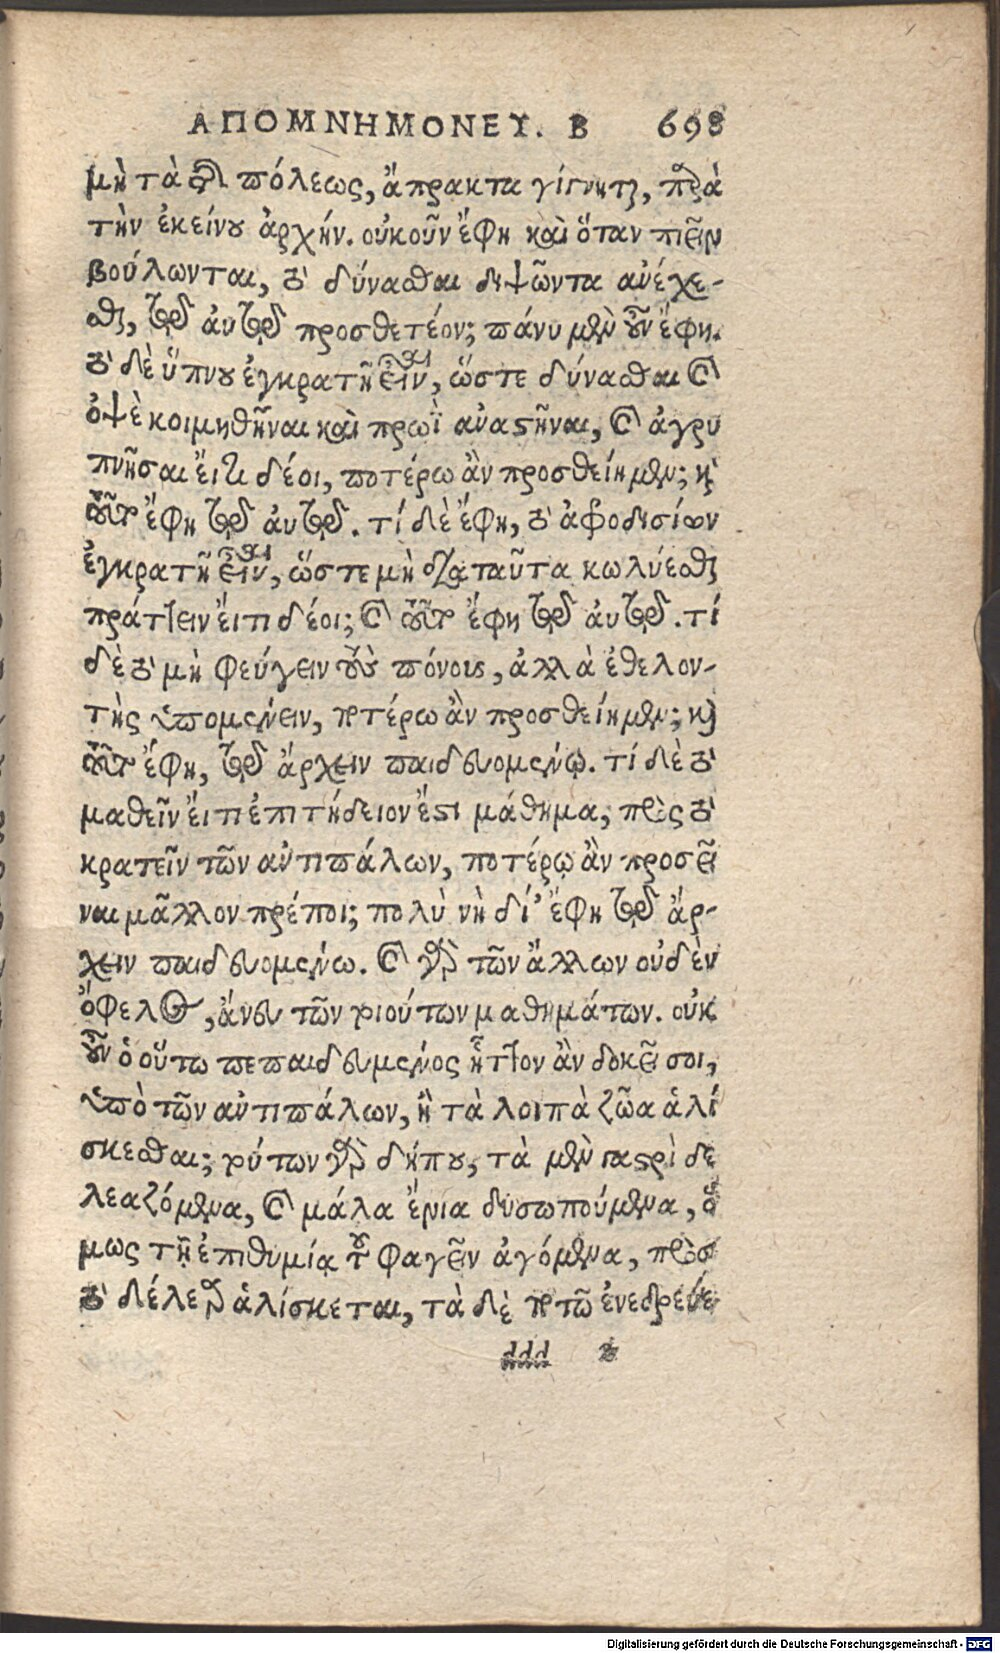 ΑΠΟΜΝΗΜΟΝΕΥ. Β 698
μὴ τὰ τῆς πόλεως, ἄπρακτα γίγνηται, παρὰ
τὴν ἐκείνου ἀρχήν. οὐκοῦν ἔφη καὶ ὅταν πιεῖν
βούλωνται, τὸ δύνασθαι διψῶντα ἀνέχε-
σθαι, τῷ αὐτῷ προσθετέον; πάνυ μὲν οὖν ἔφη.
τὸ δὲ ὕπνου ἐγκρατῆ εἶναι, ὥστε δύνασθαι καὶ
ὀψὲ κοιμηθῆναι καὶ πρωῒ ἀναστῆναι, καὶ ἀγρυ
πνῆσαι εἴ τι δέοι, ποτέρῳ ἂν προσθείημεν; καὶ
τοῦτο ἔφη τῷ αὐτῷ. τί δὲ ἔφη, τὸ ἀφροδισίων
ἐγκρατῆ εἶναι, ὥστε μὴ διὰ ταῦτα κωλύεσθαι
πράττειν εἴ τι δέοι; καὶ τοῦτο ἔφη τῷ αὐτῷ. τί
δὲ τὸ μὴ φεύγειν τοὺς πόνους, ἀλλὰ ἐθελον-
τὴς ὑπομένειν, ποτέρω ἂν προσθείημεν; καὶ
τοῦτο ἔφη, τῷ ἄρχειν παιδευομένῳ. τί δὲ τὸ
μαθεῖν εἴ τι ἐπιτήδειον ἐστι μάθημα, πρὸς τὸ
κρατεῖν τῶν ἀντιπάλων, ποτέρῳ ἂν προσεῖ
ναι μᾶλλον πρέποι; πολὺ νὴ δί' ἔφη τῷ ἄρ-
χειν παιδευομένω. καὶ γὰρ τῶν ἄλλων οὐδὲν
ὄφελος, ἄνευ τῶν τοιούτων μαθημάτων. οὐκ
οὖν ὁ οὕτω πεπαιδευμένος ἧττον ἂν δοκεῖ σοι,
ὑπὸ τῶν ἀντιπάλων, ἢ τὰ λοιπὰ ζῶα ἁλί
σκεσθαι; τούτων γὰρ δήπου, τὰ μὲν γαστρὶ δε
λεαζόμενα, καὶ μάλα ἔνια δυσωπούμενα, ὅ
μως τῇ ἐπιθυμίᾳ τοῦ φαγεῖν ἀγόμενα, πρὸς
τὸ δέλεαρ ἁλίσκεται, τὰ δὲ ποτῷ ἐνεδρεύε
ddd
Digitalisierung gefördert durch die Deutsche Forschungsgemeinschaft - DFG